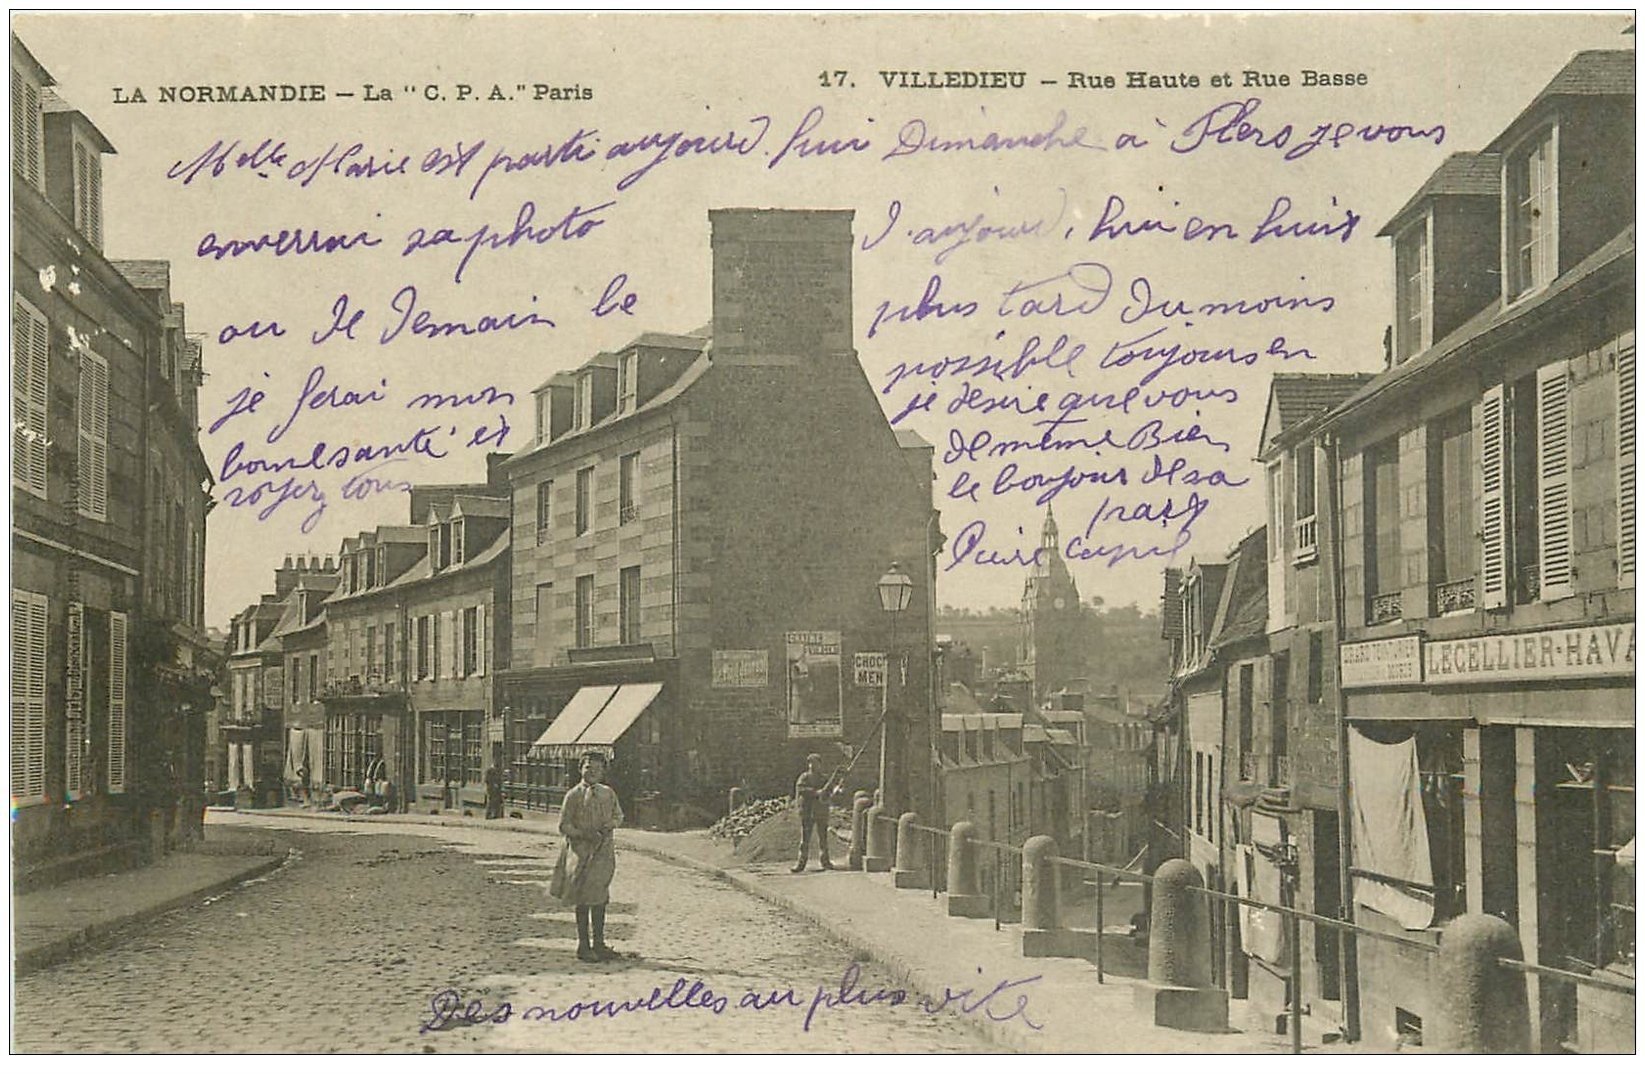 LA NORMANDIE – La "C. P. A." Paris
17. VILLEDIEU – Rue Haute et Rue Basse
Melle Marie est parti aujourd'hui Dimanche à Flers je vous
enverrai sa photo
d'aujourd'hui en huit
ou de demain le
plus tard du moins
possible toujours en
je serai mon
je désire que vous
bonne santé et
de même Bien
soyez tous
le bonjour de sa
part
Des nouvelles au plus vite
CHOC
MEN
LECELLIER-HAVA